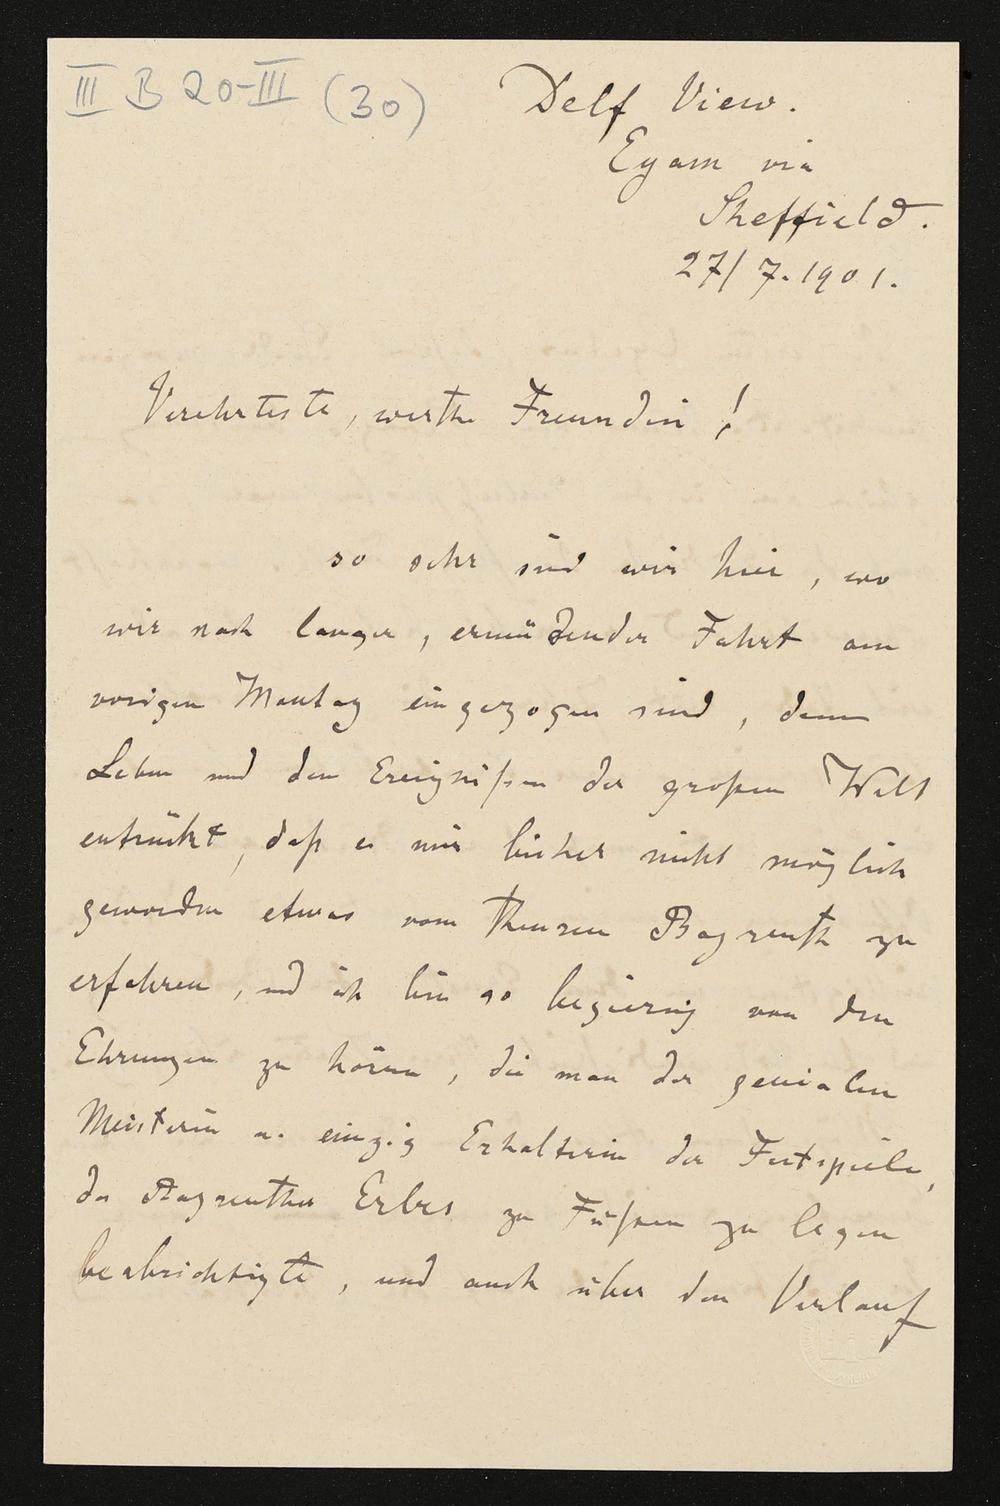 III B 20-III (30)
Delf View.
Eyam via
Sheffield.
27/7.1901.
Verehrteste, werthe Freundin!
so sehr sind wir hier, wo
wir nach langer, ermüdender Fahrt am
vorigen Montag eingezogen sind, dem
Leben und den Ereignißen der großen Welt
entrückt, daß es mir bisher nicht möglich
geworden etwas vom theuren Bayreuth zu
erfahren, und ich bin so begierig von den
Ehrungen zu hören, die man der genialen
Meisterin u. einzig Erhalterin der Festspiele,
des Bayreuther Erbes zu Füßen zu legen
beabsichtigte, und auch über den Verlauf